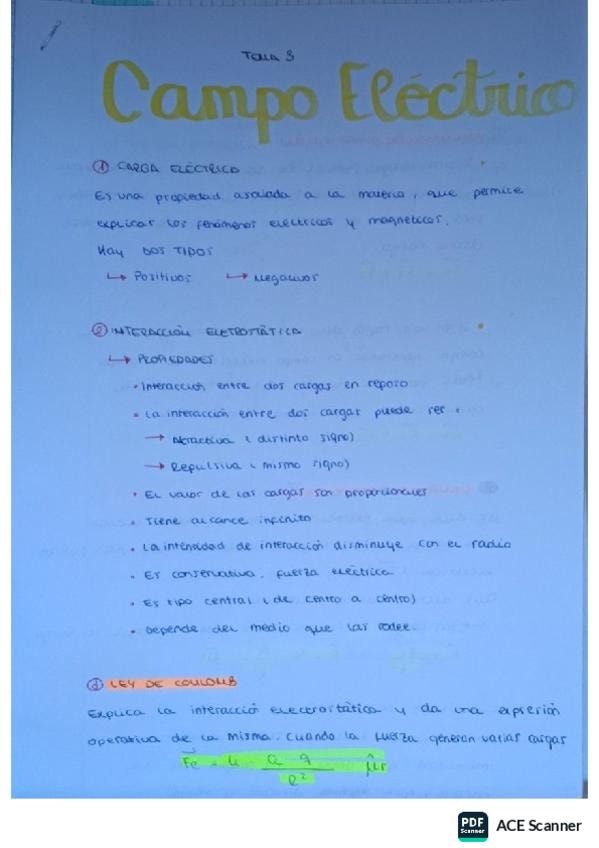 Tema 3
Campo Eléctrico
① CARGA ELÉCTRICA
Es una propiedad asociada a la materia, que permite
explicar los fenómenos eléctricos y magnéticos.
Hay DOS TIPOS
↳ Positivos ↳ Negativos
② INTERACCIÓN ELETROSTÁTICA
↳ PROPIEDADES
• Interacción entre dos cargas en reposo
• La interacción entre dos cargas puede ser:
→ Atractiva (distinto signo)
→ Repulsiva (mismo signo)
• El valor de las cargas son proporcionales
• Tiene alcance infinito
• La intensidad de interacción disminuye con el radio
• Es conservativa. fuerza eléctrica
• Es tipo central (de centro a centro)
• Depende del medio que las rodee.
LEY DE COULOMB
Explica la interacció electrostática y da una expresión
operativa de la misma. Cuando la fuerza generan varias cargas
Fe = K Q q / R² μr
PDF Scanner ACE Scanner